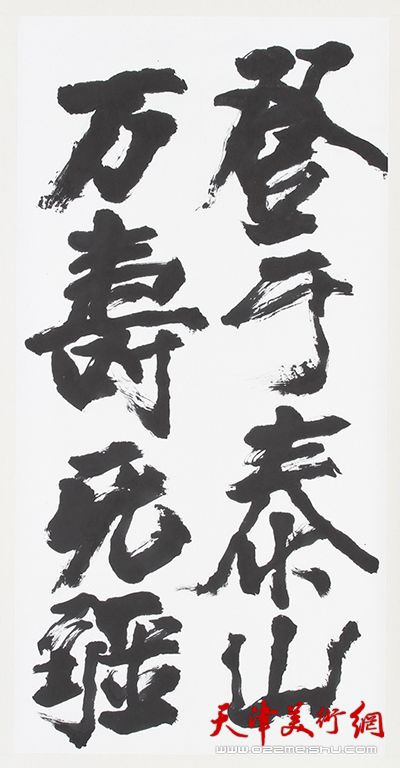 登于泰山
万寿无疆
天津美術網
www.022meishu.com